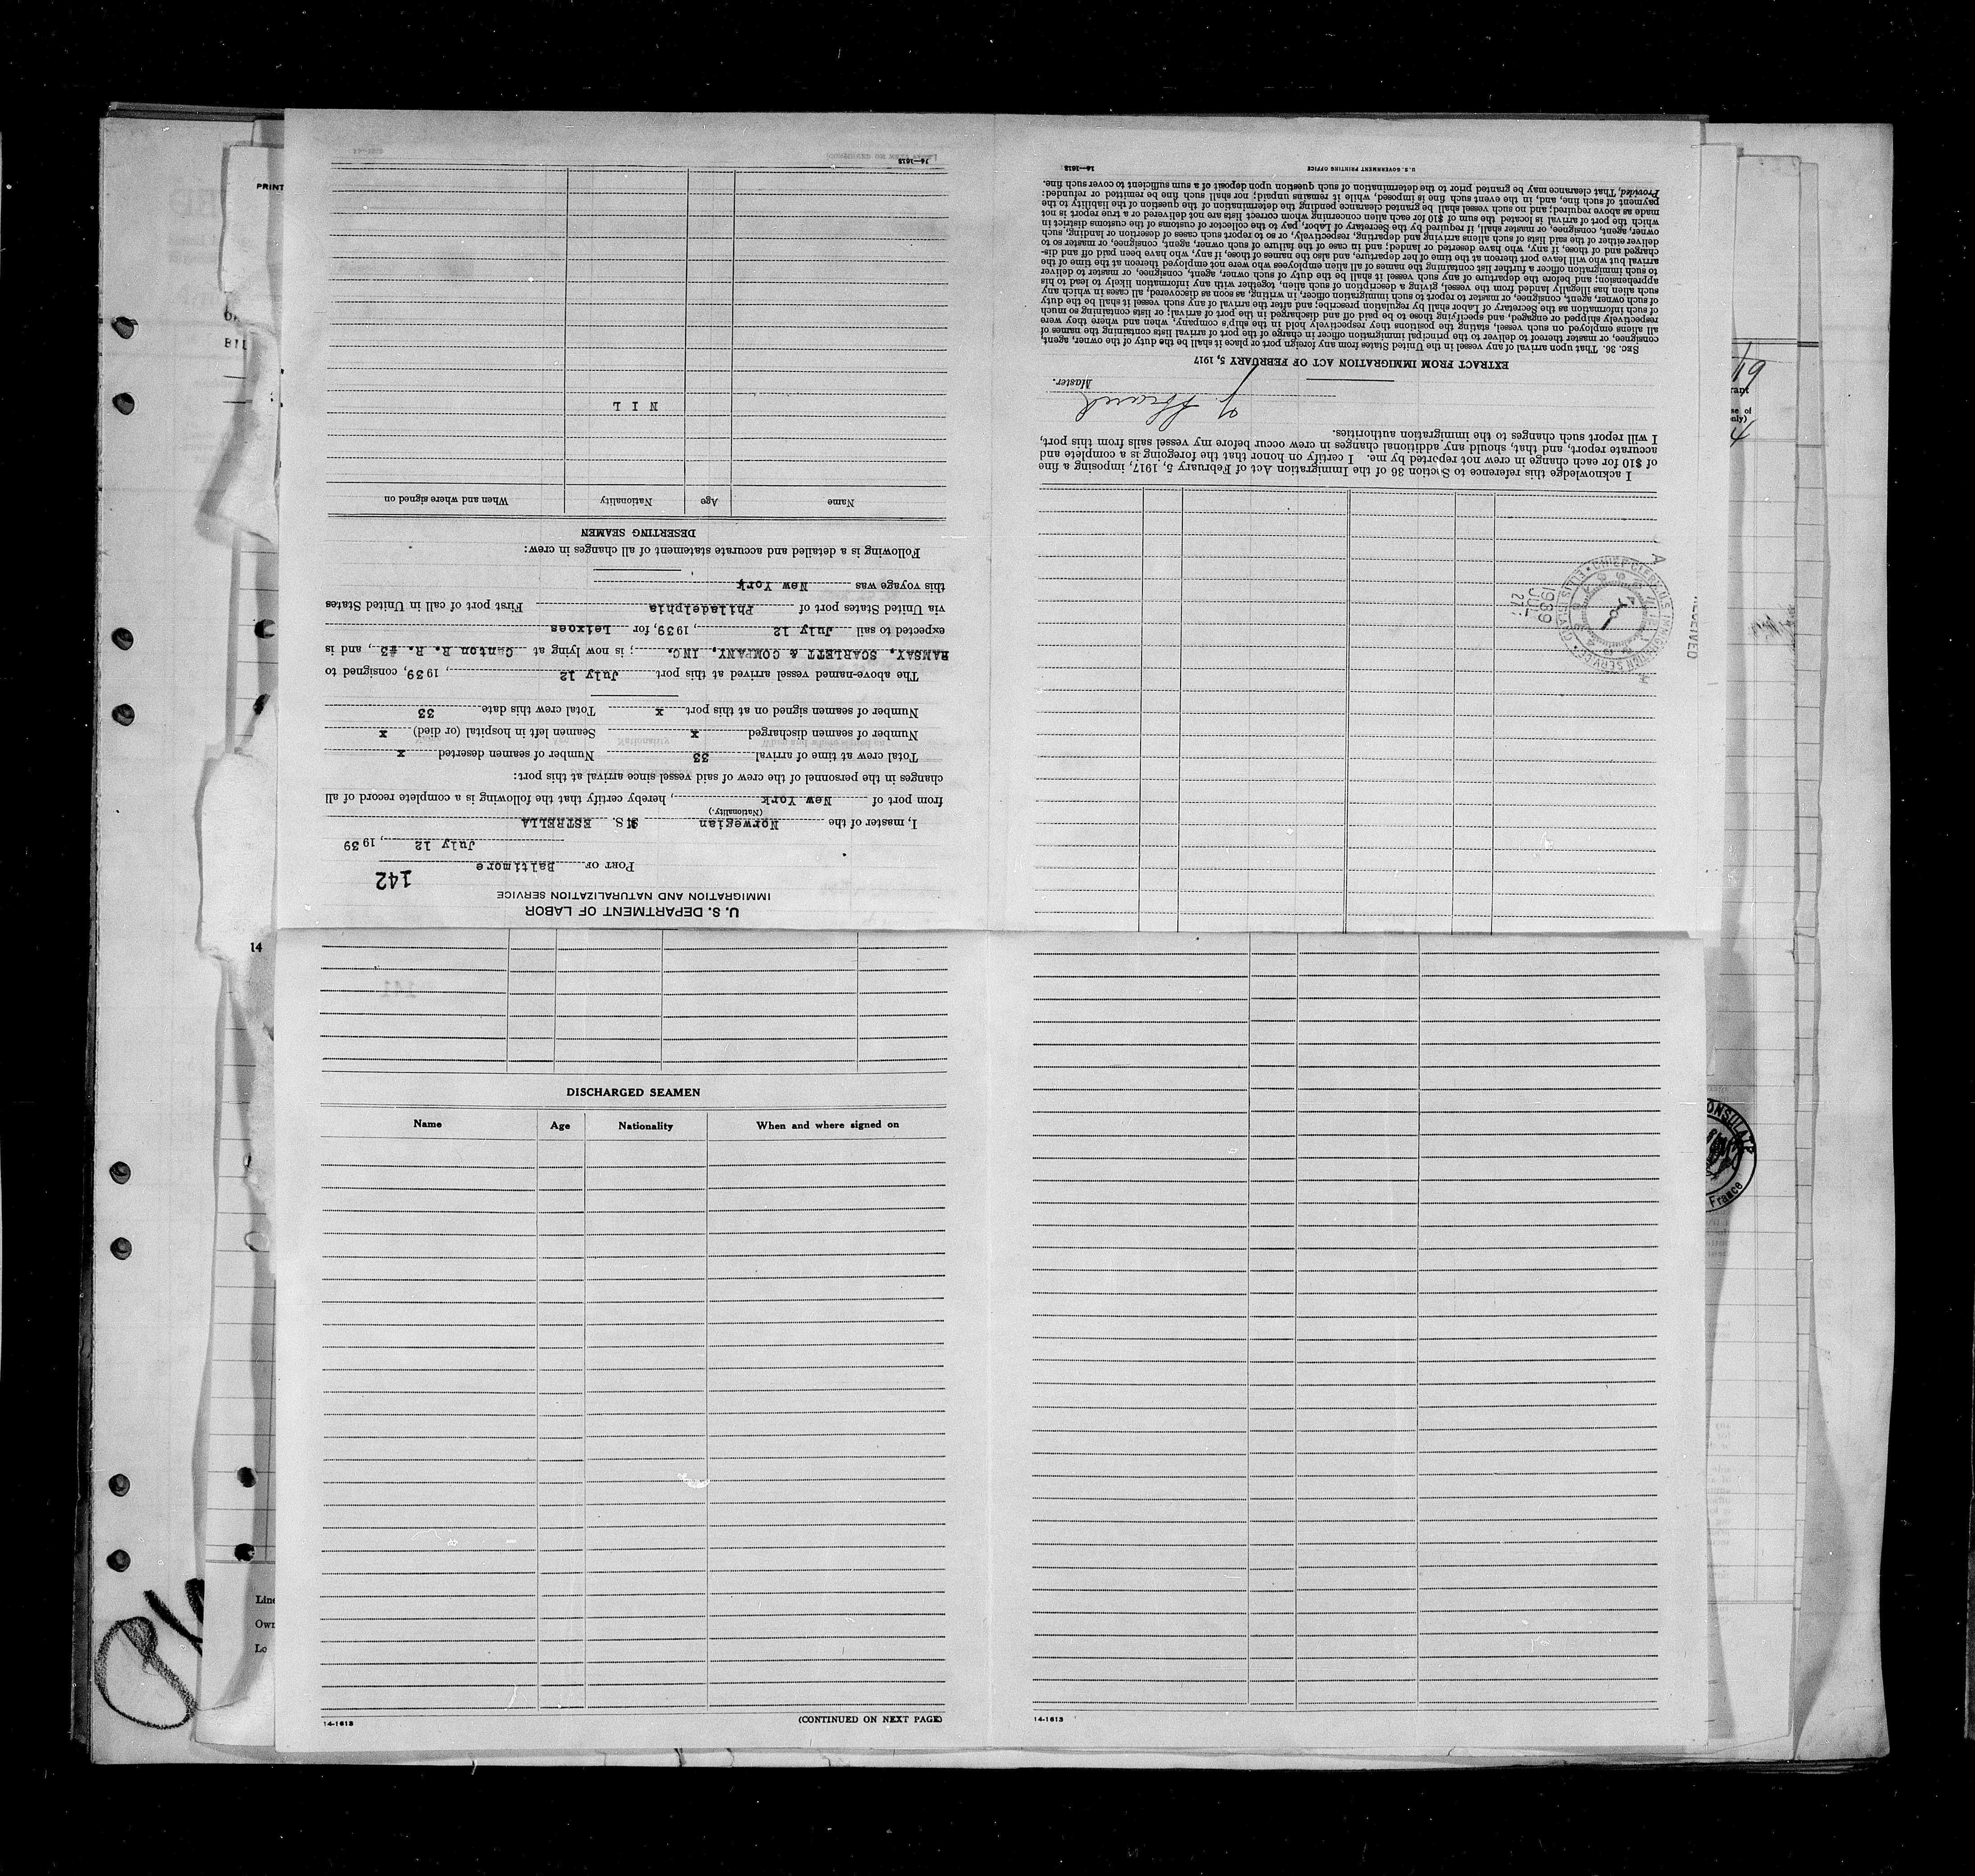 U. S. DEPARTMENT OF LABOR
IMMIGRATION AND NATURALIZATION SERVICE
142
PORT OF Baltimore
July 12, 1939
I, master of the Norwegian M/S. ESTRELLA
(Nationality)
from port of New York, hereby certify that the following is a complete record of all
changes in the personnel of the crew of said vessel since arrival at this port:
Total crew at time of arrival 33 Number of seamen deserted x
Number of seamen discharged x Seamen left in hospital (or died) x
Number of seamen signed on at this port x Total crew this date 33
The above-named vessel arrived at this port July 12, 1939, consigned to
RAMSAY, SCARLETT & COMPANY, INC.; is now lying at Canton R. R. #3, and is
expected to sail July 12, 1939, for Leixoes
via United States port of Philadelphia First port of call in United States
this voyage was New York
Following is a detailed and accurate statement of all changes in crew:
DESERTING SEAMEN
Name Age Nationality When and where signed on
N I L
14—1613
I acknowledge this reference to Section 36 of the Immigration Act of February 5, 1917, imposing a fine
of $10 for each change in crew not reported by me. I certify on honor that the foregoing is a complete and
accurate report, and that, should any additional changes in crew occur before my vessel sails from this port,
I will report such changes to the immigration authorities.
Master.
EXTRACT FROM IMMIGRATION ACT OF FEBRUARY 5, 1917
SEC. 36. That upon arrival of any vessel in the United States from any foreign port or place it shall be the duty of the owner, agent,
consignee, or master thereof to deliver to the principal immigration officer in charge of the port of arrival lists containing the names of
all aliens employed on such vessel, stating the positions they respectively hold in the ship's company, when and where they were
respectively shipped or engaged, and specifying those to be paid off and discharged in the port of arrival; or lists containing so much
of such information as the Secretary of Labor shall by regulation prescribe; and after the arrival of any such vessel it shall be the duty
of such owner, agent, consignee, or master to report to such immigration officer, in writing, as soon as discovered, all cases in which any
such alien has illegally landed from the vessel, giving a description of such alien, together with any information likely to lead to his
apprehension; and before the departure of any such vessel it shall be the duty of such owner, agent, consignee, or master to deliver
to such immigration officer a further list containing the names of all alien employees who were not employed thereon at the time of the
arrival but who will leave port thereon at the time of her departure, and also the names of those, if any, who have been paid off and dis-
charged and of those, if any, who have deserted or landed; and in case of the failure of such owner, agent, consignee, or master so to
deliver either of the said lists of such aliens arriving and departing, respectively, or so to report such cases of desertion or landing, such
owner, agent, consignee, or master shall, if required by the Secretary of Labor, pay to the collector of customs of the customs district in
which the port of arrival is located the sum of $10 for each alien concerning whom correct lists are not delivered or a true report is not
made as above required; and no such vessel shall be granted clearance pending the determination of the question of the liability to the
payment of such fine, and, in the event such fine is imposed, while it remains unpaid; nor shall such fine be remitted or refunded:
Provided, That clearance may be granted prior to the determination of such question upon deposit of a sum sufficient to cover such fine.
U. S. GOVERNMENT PRINTING OFFICE
14—1613
RECEIVED
1939
JUL
DISCHARGED SEAMEN
Name Age Nationality When and where signed on
14-1613
(CONTINUED ON NEXT PAGE)
14-1613
PRINT
14
Line
France